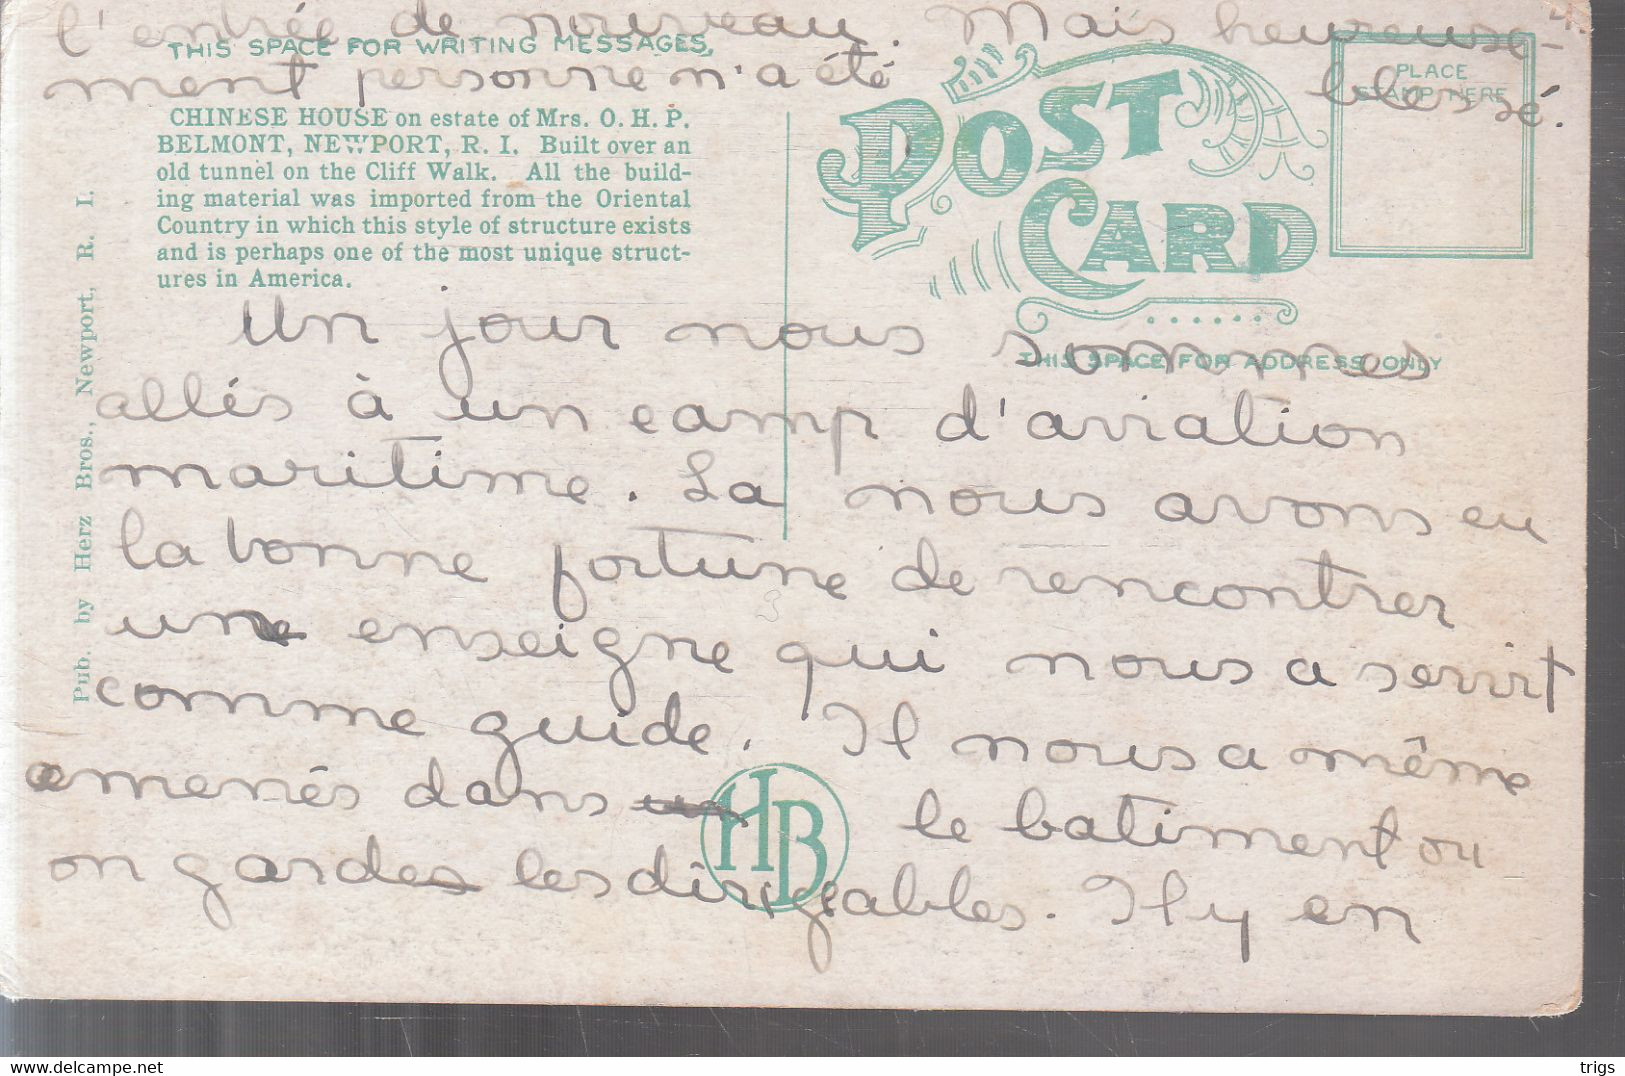 l'entrée de nouveau. Mais heureuse-
THIS SPACE FOR WRITING MESSAGES,
ment personne n'a été blessé.
PLACE
STAMP HERE
CHINESE HOUSE on estate of Mrs. O. H. P.
BELMONT, NEWPORT, R. I. Built over an
old tunnel on the Cliff Walk. All the build-
ing material was imported from the Oriental
Country in which this style of structure exists
and is perhaps one of the most unique struct-
ures in America.
POST
CARD
THIS SPACE FOR ADDRESS ONLY
Pub. by Herz Bros., Newport, R. I.
Un jour nous sommes
allés à un camp d'aviation
maritime. La nous avons eu
la bonne fortune de rencontrer
un enseigne qui nous a servit
comme guide. Il nous a même
amenés dans le batiment ou
on garde les dirigeables. Il y en
HB
trigs
https://www.delcampe.net